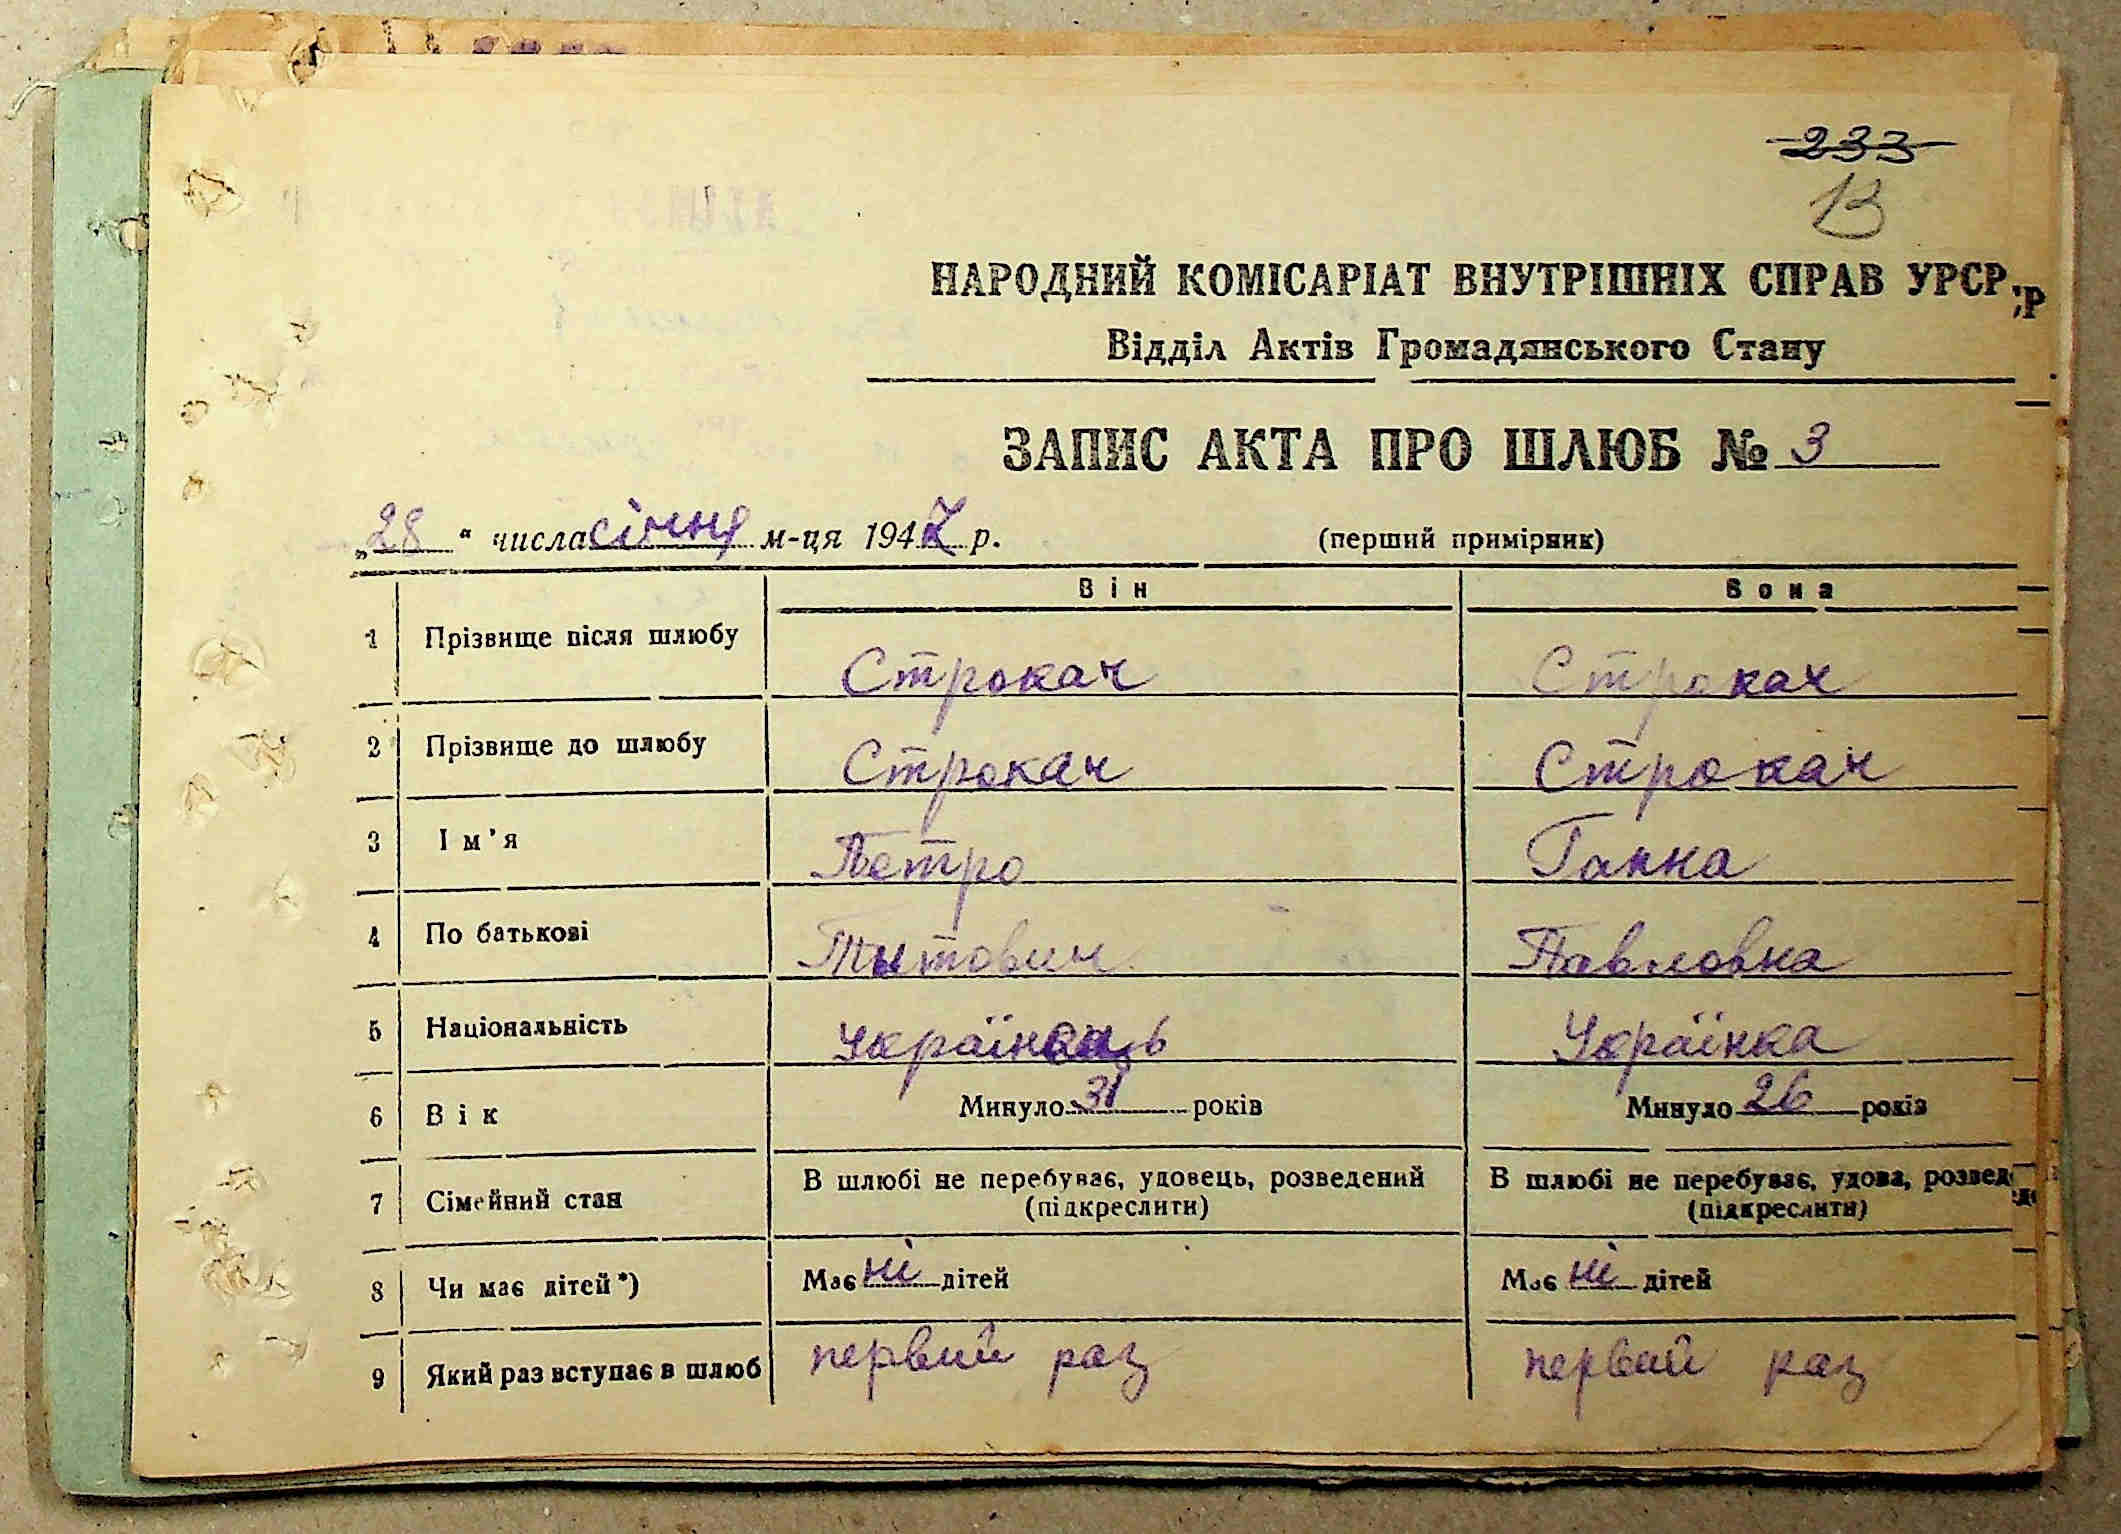 233
13
НАРОДНИЙ КОМІСАРІАТ ВНУТРІШНІХ СПРАВ УРСР
Відділ Актів Громадянського Стану
ЗАПИС АКТА ПРО ШЛЮБ № 3
„28“ числа січня м-ця 1947 р. (перший примірник)
Він Вона
1 Прізвище після шлюбу Строкач Строкач
2 Прізвище до шлюбу Строкач Строкач
3 Ім'я Петро Ганна
4 По батькові Тытович Павловна
5 Національність Українець Українка
6 Вік Минуло 31 років Минуло 26 років
7 Сімейний стан В шлюбі не перебуває, удовець, розведений В шлюбі не перебуває, удова, розвед
(підкреслити) (підкреслити)
8 Чи має дітей*) Має ні дітей Має ні дітей
9 Який раз вступає в шлюб первий раз первай раз